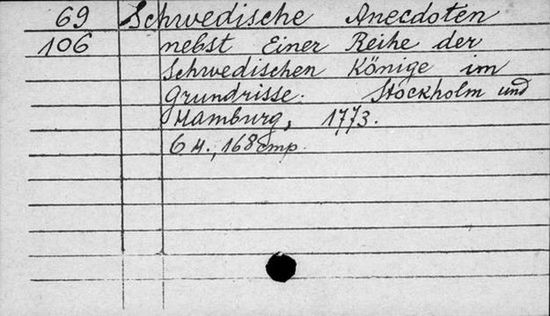 69 Schwedische Anecdoten
106 nebst Einer Reihe der
Schwedischen Könige im
Grundrisse. Stockholm und
Hamburg, 1773.
6 н., 168 стр.